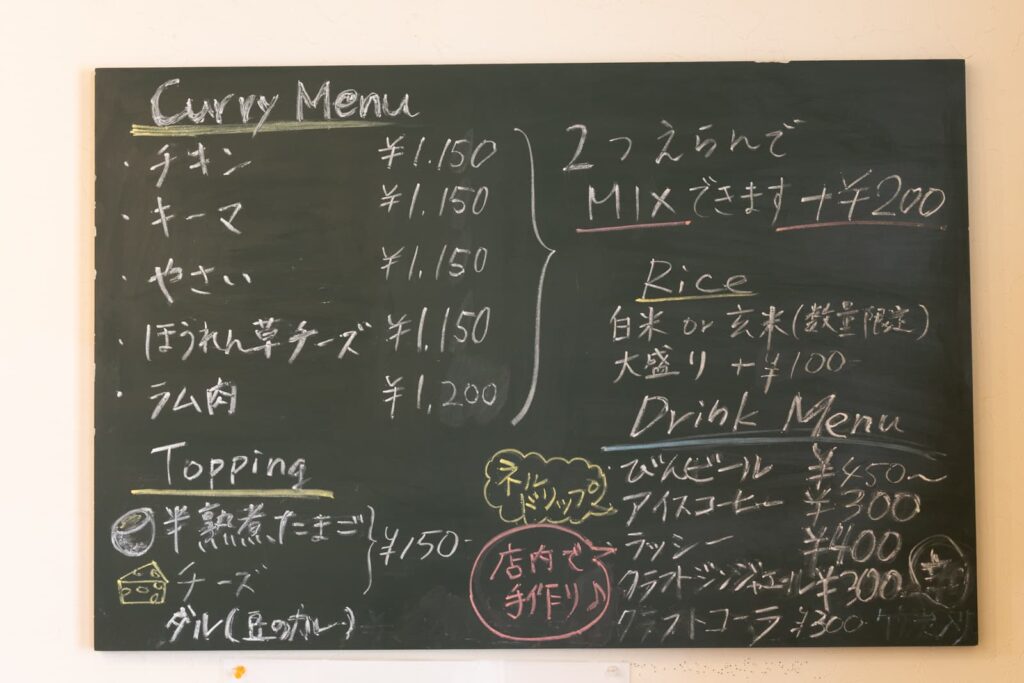 Curry Menu
・チキン ¥1,150
・キーマ ¥1,150
・やさい ¥1,150
・ほうれん草チーズ ¥1,150
・ラム肉 ¥1,200
2つえらんで
MIXできます +¥200
Rice
白米 or 玄米(数量限定)
大盛り +¥100
Topping
半熟煮たまご
チーズ
¥150-
ダル(豆のカレー)
Drink Menu
びんビール ¥450〜
ネルドリップ
アイスコーヒー ¥300
店内で
手作り♪
ラッシー ¥400
クラフトジンジャエール ¥300
クラフトコーラ ¥300